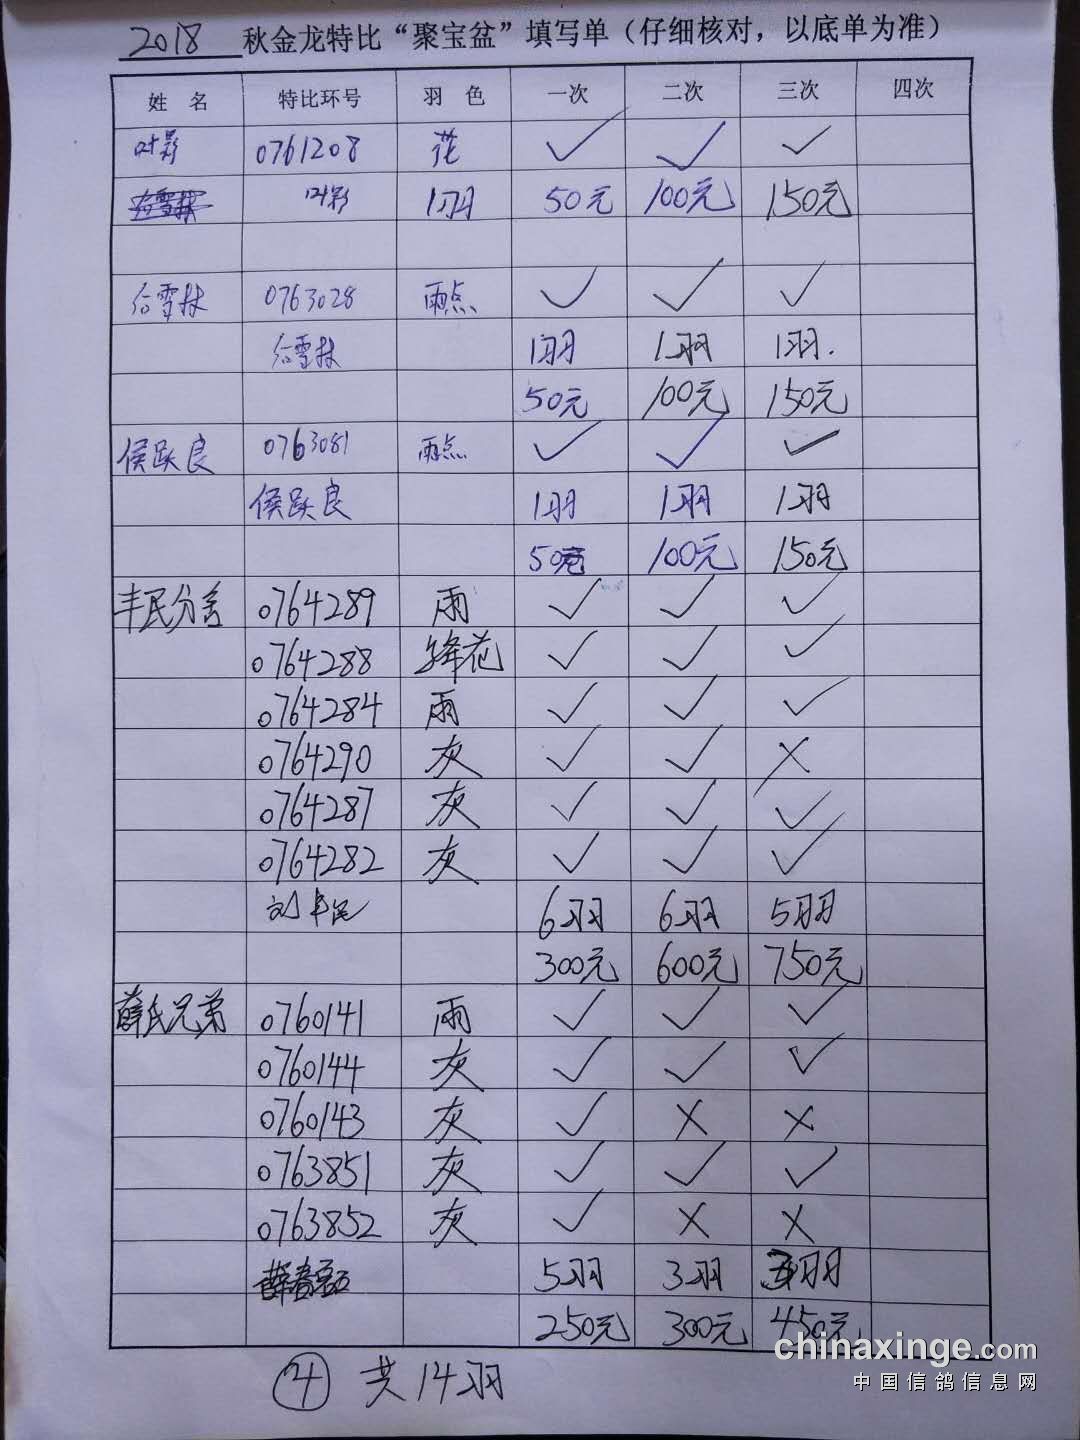 2018 秋金龙特比“聚宝盆”填写单（仔细核对，以底单为准）
姓 名 特比环号 羽 色 一次 二次 三次 四次
叶彩 0761208 花 ✓ ✓ ✓
叶彩 1羽 50元 100元 150元
雪林 0763028 雨点 ✓ ✓ ✓
雪林 1羽 1羽 1羽.
50元 100元 150元
侯跃良 0763081 雨点 ✓ ✓ ✓
侯跃良 1羽 1羽 1羽
50元 100元 150元
丰民分舍 0764289 雨 ✓ ✓ ✓
0764288 绛花 ✓ ✓ ✓
0764284 雨 ✓ ✓ ✓
0764290 灰 ✓ ✓ ×
0764287 灰 ✓ ✓ ✓
0764282 灰 ✓ ✓ ✓
刘丰民 6羽 6羽 5羽
300元 600元 750元
薛氏兄弟 0760141 雨 ✓ ✓ ✓
0760144 灰 ✓ ✓ ✓
0760143 灰 ✓ × ×
0763851 灰 ✓ ✓ ✓
0763852 灰 ✓ × ×
5羽 3羽 3羽
250元 300元 450元
④ 共14羽
chinaxinge.com
中国信鸽信息网